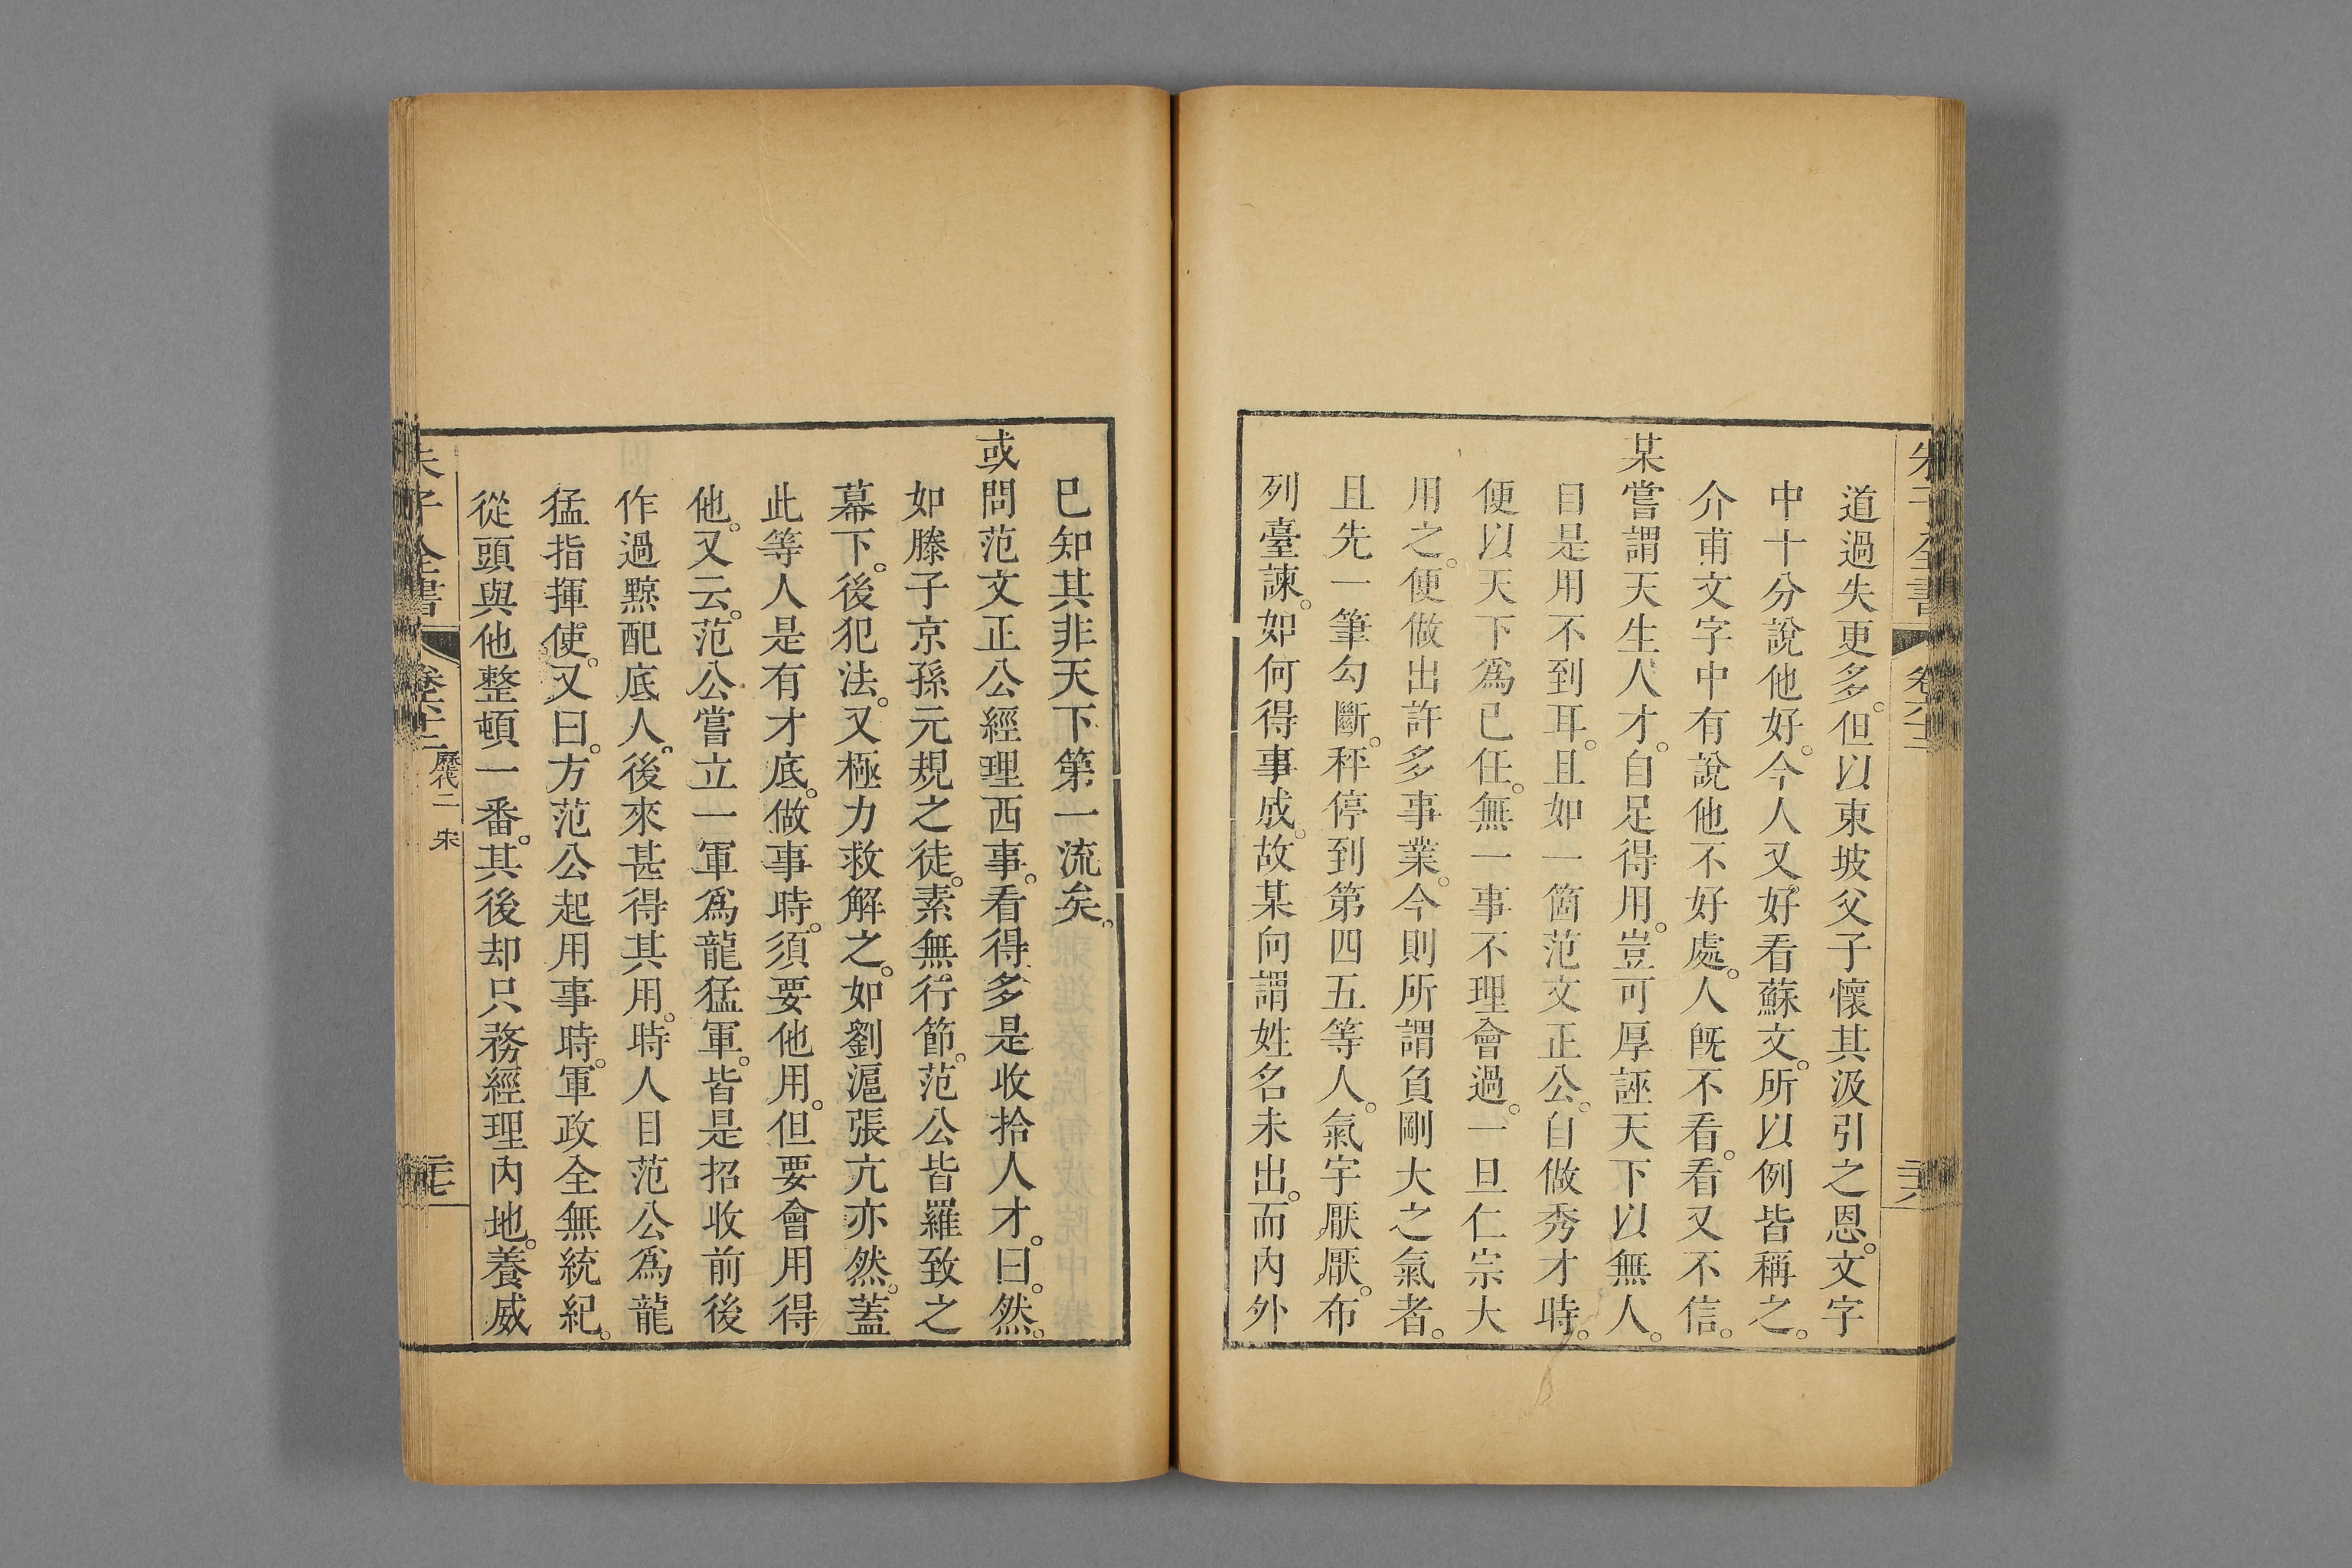 道過失更多。但以東坡父子懷其汲引之恩。文字
中十分說他好。今人又好看蘇文。所以例皆稱之。
介甫文字中有說他不好處。人旣不看。看又不信。
某嘗謂天生人才。自足得用。豈可厚誣天下以無人。
自是用不到耳。且如一箇范文正公。自做秀才時。
便以天下爲己任。無一事不理會過。一旦仁宗大
用之。便做出許多事業。今則所謂負剛大之氣者。
且先一筆勾斷。秤停到第四五等人。氣宇厭厭。布
列臺諫。如何得事成。故某向謂姓名未出。而內外
已知其非天下第一流矣。
或問范文正公經理西事。看得多是收拾人才。曰。然。
如滕子京孫元規之徒。素無行節。范公皆羅致之
幕下。後犯法。又極力救解之。如劉滬張亢亦然。蓋
此等人是有才底。做事時。須要他用。但要會用得
他。又云。范公嘗立一軍爲龍猛軍。皆是招收前後
作過黥配底人。後來甚得其用。時人目范公爲龍
猛指揮使。又曰。方范公起用事時。軍政全無統紀。
從頭與他整頓一番。其後却只務經理內地。養威
朱子全書
歷代二 宋